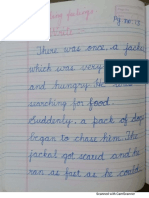 Pg no: 13
There was once a jackal
which was very
and hungry. He was
searching for food.
Suddenly, a pack of dogs
began to chase him. The
jackal got scared and he
ran as fast as he could.
Scanned with CamScanner